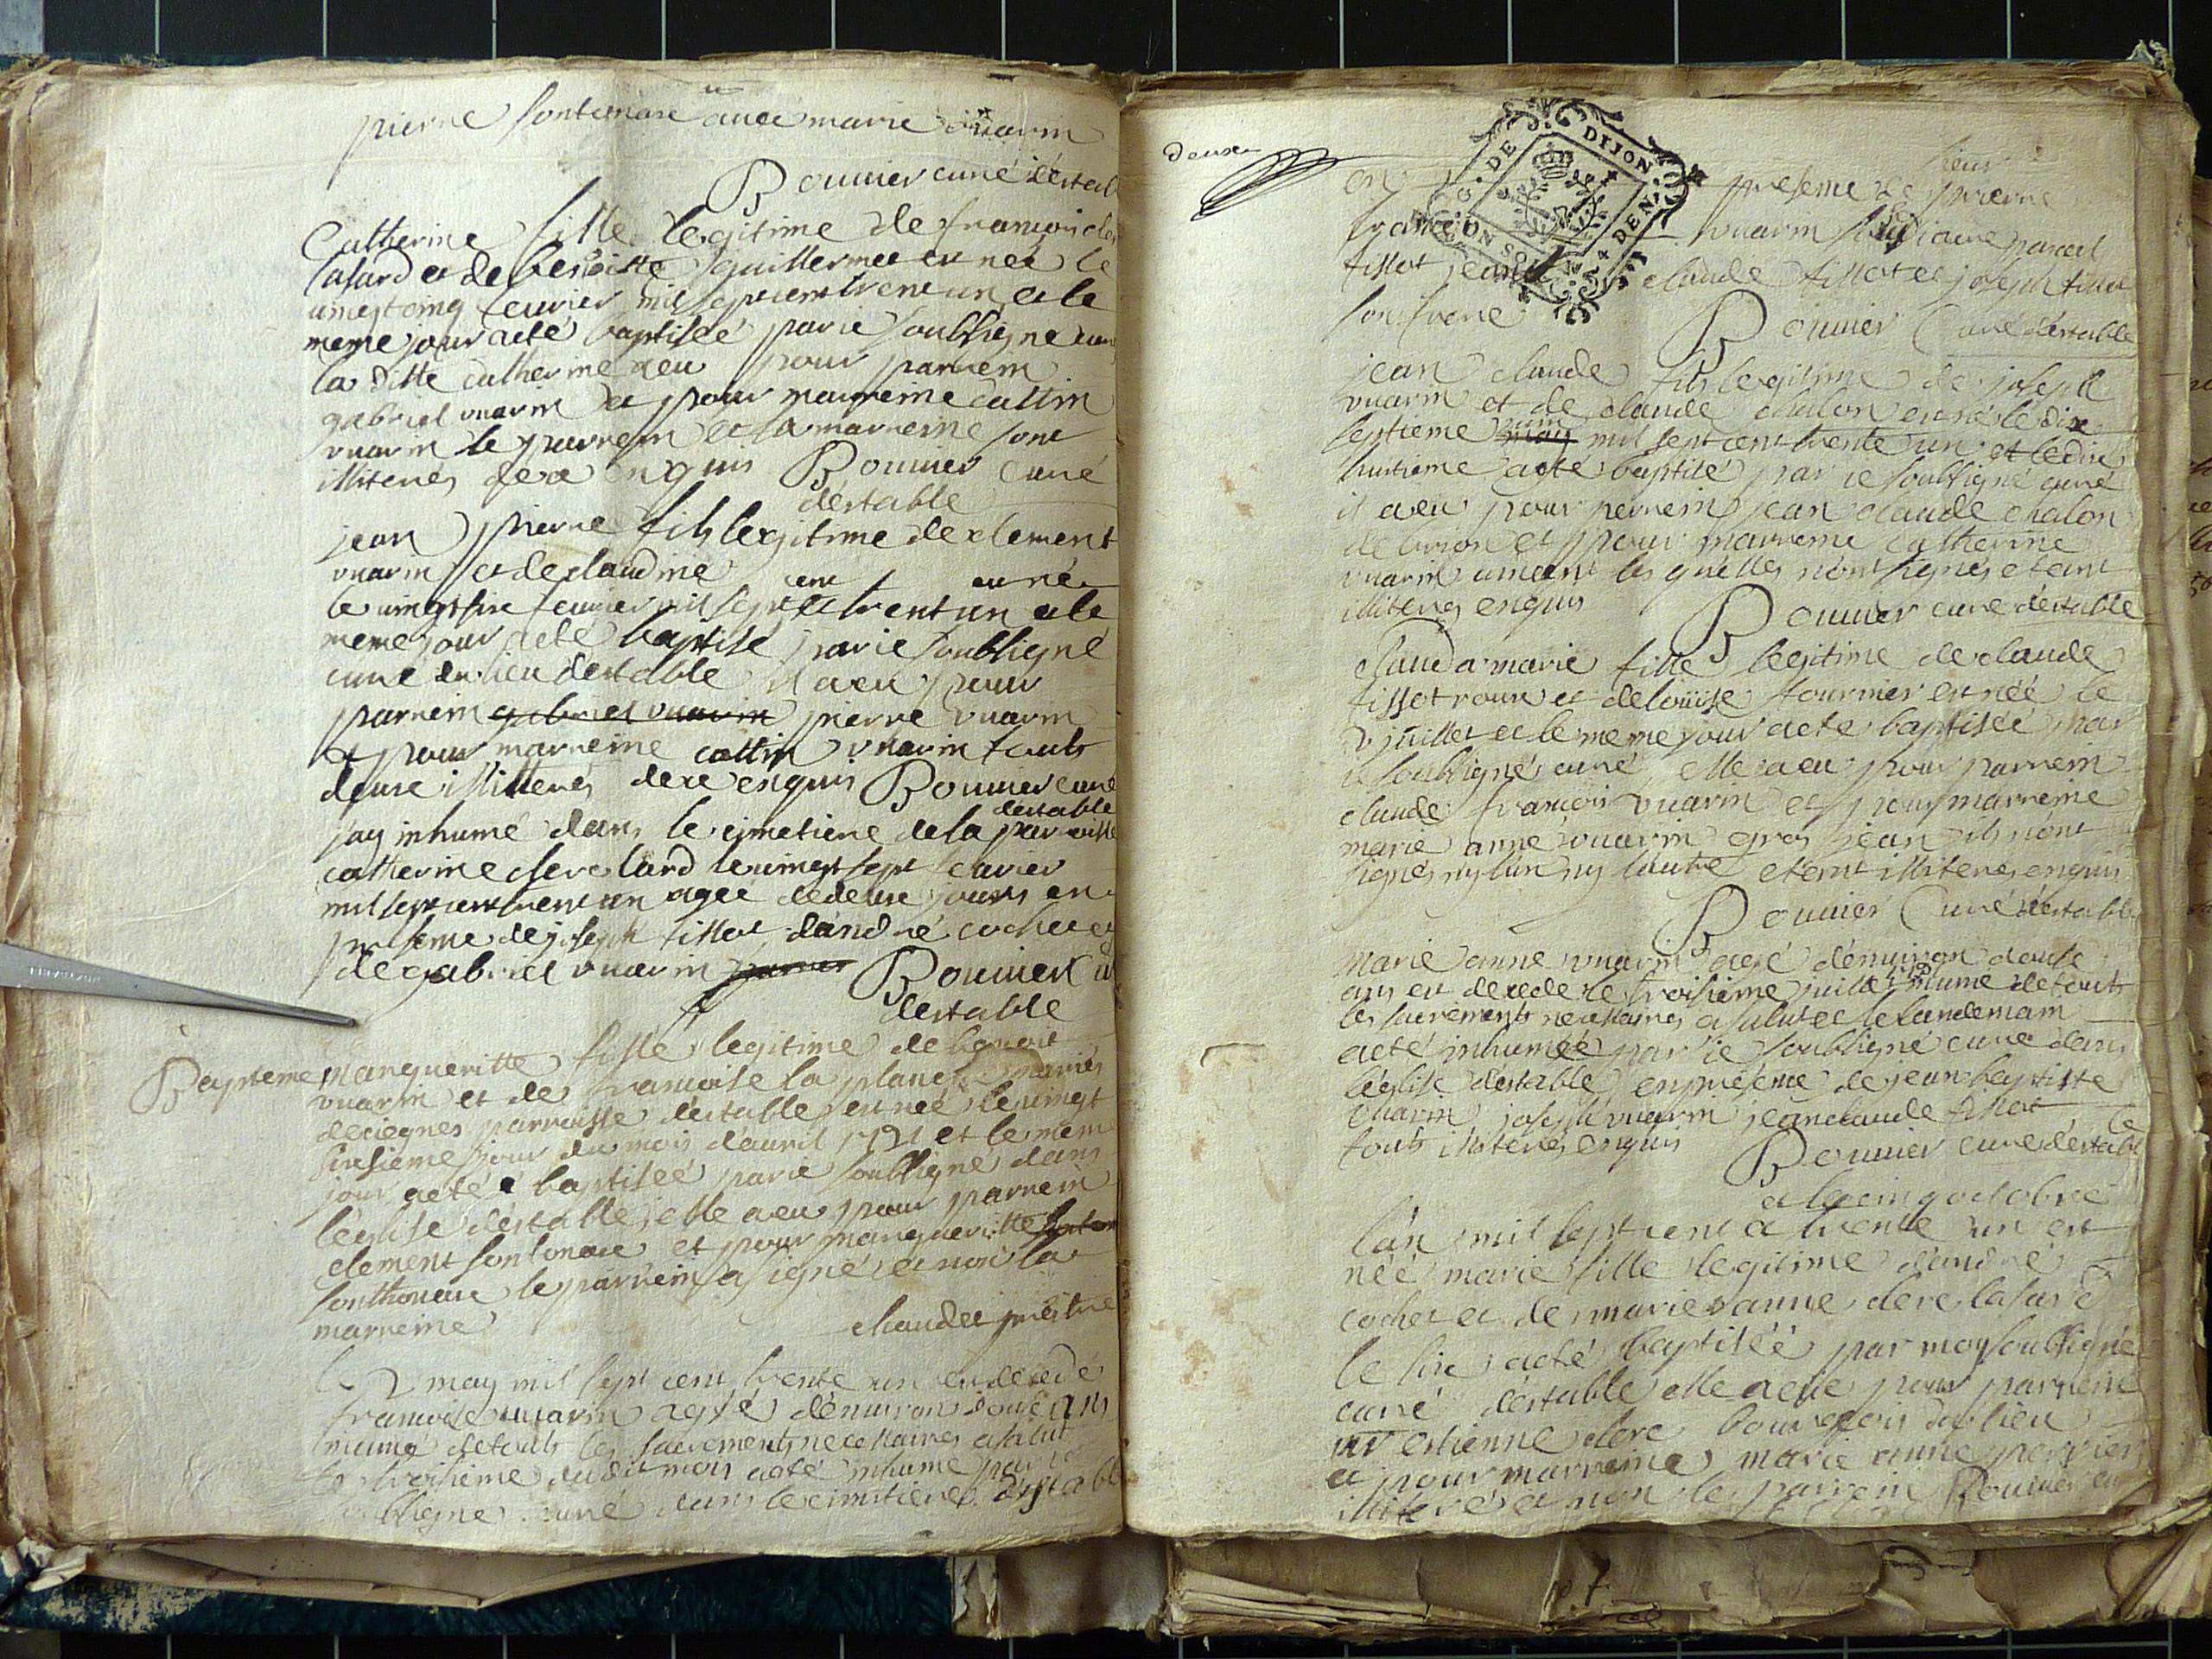 pierre fontemare auec marie vuarin
Bouuier curé déstab
Catherine fille legitime de francois cler
lasard et de benoitte guillermet est neé le
uingtcinq feurier mil septcent trent un et le
meme jour a eté baptiseé par ie soubsigné curé
la ditte catherine a eu pour parrein
gabriel vuarin et pour marreine cattin
vuarin le parrein et la marreine sont
illiterés de ce enquis Bouuier curé
déstable
jean pierre fils legitime de clement
vuarin et de claudine est né
le uingt six feurier mil sept cent et trent un et le
meme jour a eté baptisé par ie soubsigné
curé du lieu destable il a eu pour
parrein gabriel vuarin pierre vuarin
et pour marreine cattin vuarin touts
deux illiterés de ce enquis Bouuier curé
destable
j'ay inhumé dans le cimetiere de la parroisse
catherine clerc lasard le uingt sept feurier
mil sept cent trent un ageé de deux jours en
presence de joseph tissot d'andré cochet et
de gabriel vuarin Bouuier cu
destable
Bapteme margueritte fille legitime de benoit
vuarin et de francoise la planche mariés
de ciegnes parroisse déstable est neé le uingt
sixsieme jour du mois d'auril 1731 et le mem
jour a eté baptiseé par ie soubsigné dans
l'eglise déstable elle a eu pour parrein
clement fontonare et pour margueritte
fonthonare le parrein a signé et non la
marreine chaudet prestre
le 2 may mil sept cent trente un est decedé
francoise vuarin agé d'enuiron douse ans
munie de touts les sacrements necessaires a salut
le troisieme dudit mois a eté inhumé par ie
soubsigné curé dans le cimitiere d'establ
deuxe
G. DE DIJON
ON SOL DEN
en presence de sieur pierre
francois vuarin soudiacre marcel
tissot jean claude tissot et joseph tissot
son frere Bouuier Curé déstable
jean claude fils legitime de joseph
vuarin et de claude chalon est né le dixe
septieme juin mil sept cent trente un et le dix
huitieme a eté baptisé par ie soubsigné curé
il a eu pour perrein jean claude chalon
de brion et pour marreine catherine
vuarin uincent les quelles n'ont signés etant
illiterés enquis Bouuier curé destable
clauda marie fille legitime de claude
tissot roux et de loüise fournier est neé le
2 juillet et le meme jour a eté baptiseé par
ie soubsigné curé elle a eu pour parrein
claude francois vuarin et pour marreine
marie anne vuarin gros jean ils n'ont
signés ny l'un ny l'autre etent illiterés enquis
Bouuier Curé déstable
marie anne vuarin ageé d'enuiron douse
ans est decede le troisieme juillet munie de touts
les sacrements necessaires a salut et le landemain
a eté inhumeé par ie soubsigné curé dans
l'eglise déstable en presence de jean baptiste
vuarin joseph vuarin jean claude tissot
touts illiterés enquis Bouuier curé déstable
et le cinq octobre
l'an mil sept cent et trente un est
neé marie fille legitime d'andré
cochet et de marie anne clerc lasard
le six a eté baptiseé par moy soubsigné
curé déstable elle a eüe pour parrein
sr estienne clerc bourgeois du lieu
et pour marreine marie anne perrier
illiteré et non le parrein Bouuier cu